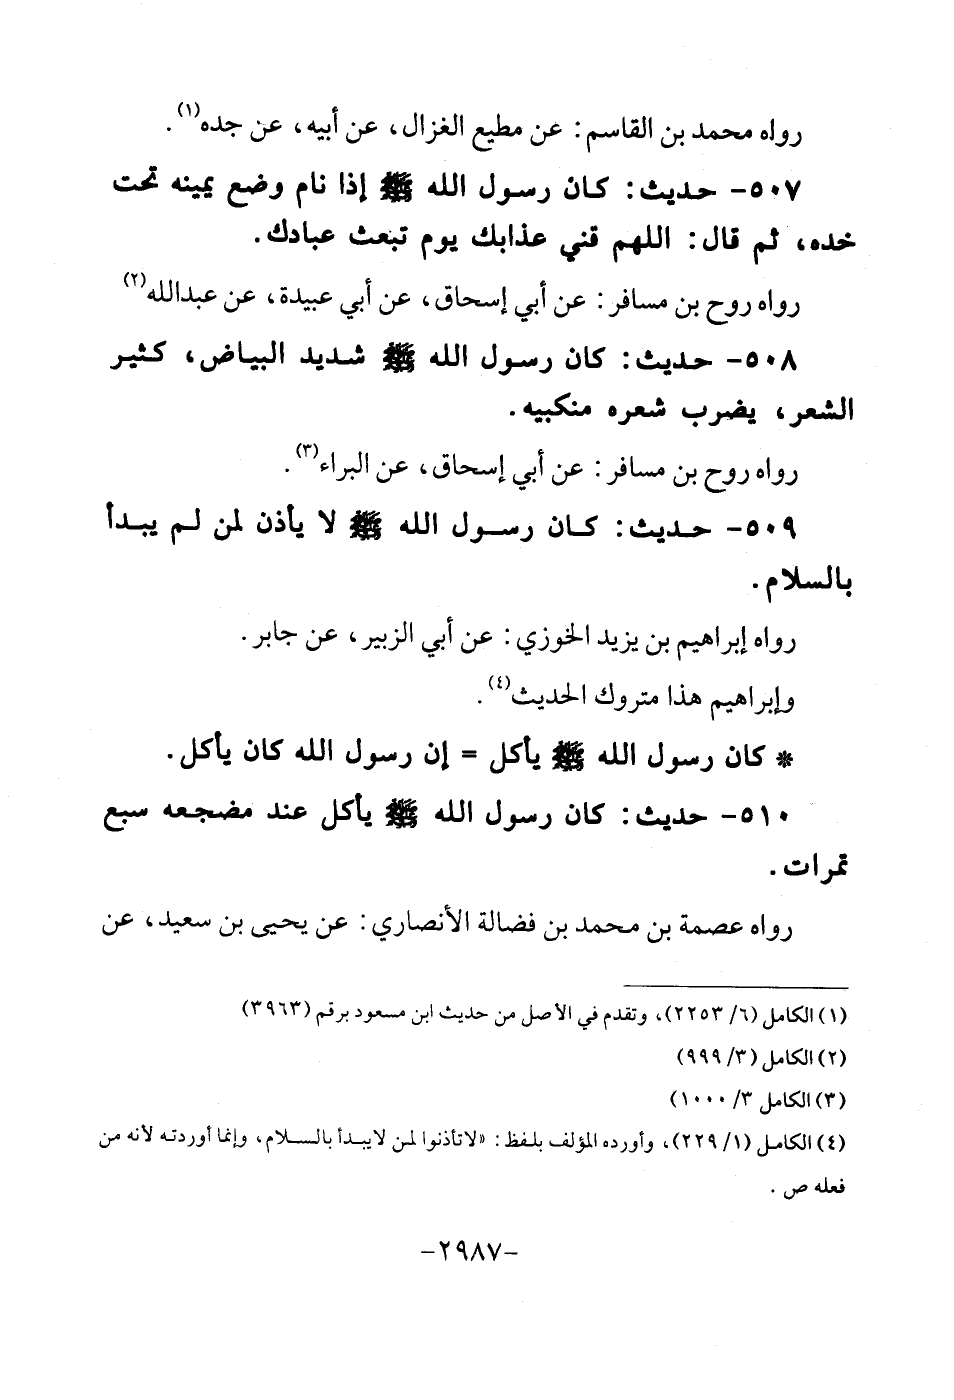 رواه محمد بن القاسم: عن مطيع الغزال، عن أبيه، عن جده(١).
٥٠٧- حديث: كان رسول الله ﷺ إذا نام وضع يمينه تحت
خده، ثم قال: اللهم قني عذابك يوم تبعث عبادك.
رواه روح بن مسافر: عن أبي إسحاق، عن أبي عبيدة، عن عبدالله(٢)
٥٠٨- حديث: كان رسول الله ﷺ شديد البياض، كثير
الشعر، يضرب شعره منكبيه.
رواه روح بن مسافر: عن أبي إسحاق، عن البراء(٣).
٥٠٩- حديث: كان رسول الله ﷺ لا يأذن لمن لم يبدأ
بالسلام.
رواه إبراهيم بن يزيد الخوزي: عن أبي الزبير، عن جابر.
وإبراهيم هذا متروك الحديث(٤).
* كان رسول الله ﷺ يأكل = إن رسول الله كان يأكل.
٥١٠- حديث: كان رسول الله ﷺ يأكل عند مضجعه سبع
تمرات.
رواه عصمة بن محمد بن فضالة الأنصاري: عن يحيى بن سعيد، عن
(١) الكامل (٦/ ٢٢٥٣)، وتقدم في الأصل من حديث ابن مسعود برقم (٣٩٦٣)
(٢) الكامل (٣/ ٩٩٩)
(٣) الكامل ٣/ ١٠٠٠)
(٤) الكامل (١/ ٢٢٩)، وأورده المؤلف بلفظ: «لاتأذنوا لمن لايبدأ بالسلام، وإنما أوردته لأنه من
فعله ص .
-٢٩٨٧-